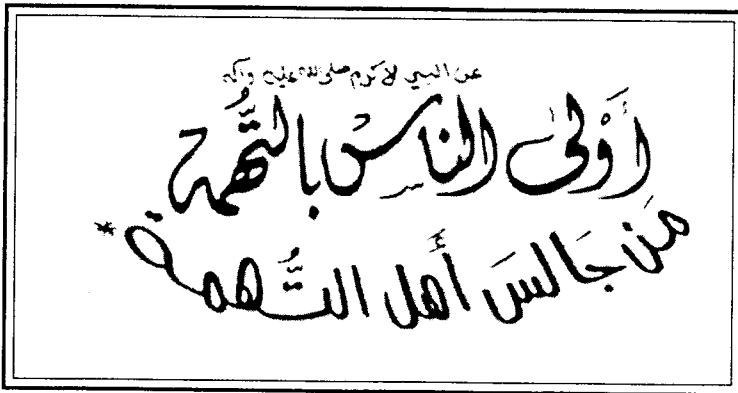 عن النبي الاكرم صلى الله عليه وآله
أَوْلى الناس بالتُّهمة
مَن جَالسَ أَهل التُّهمة *